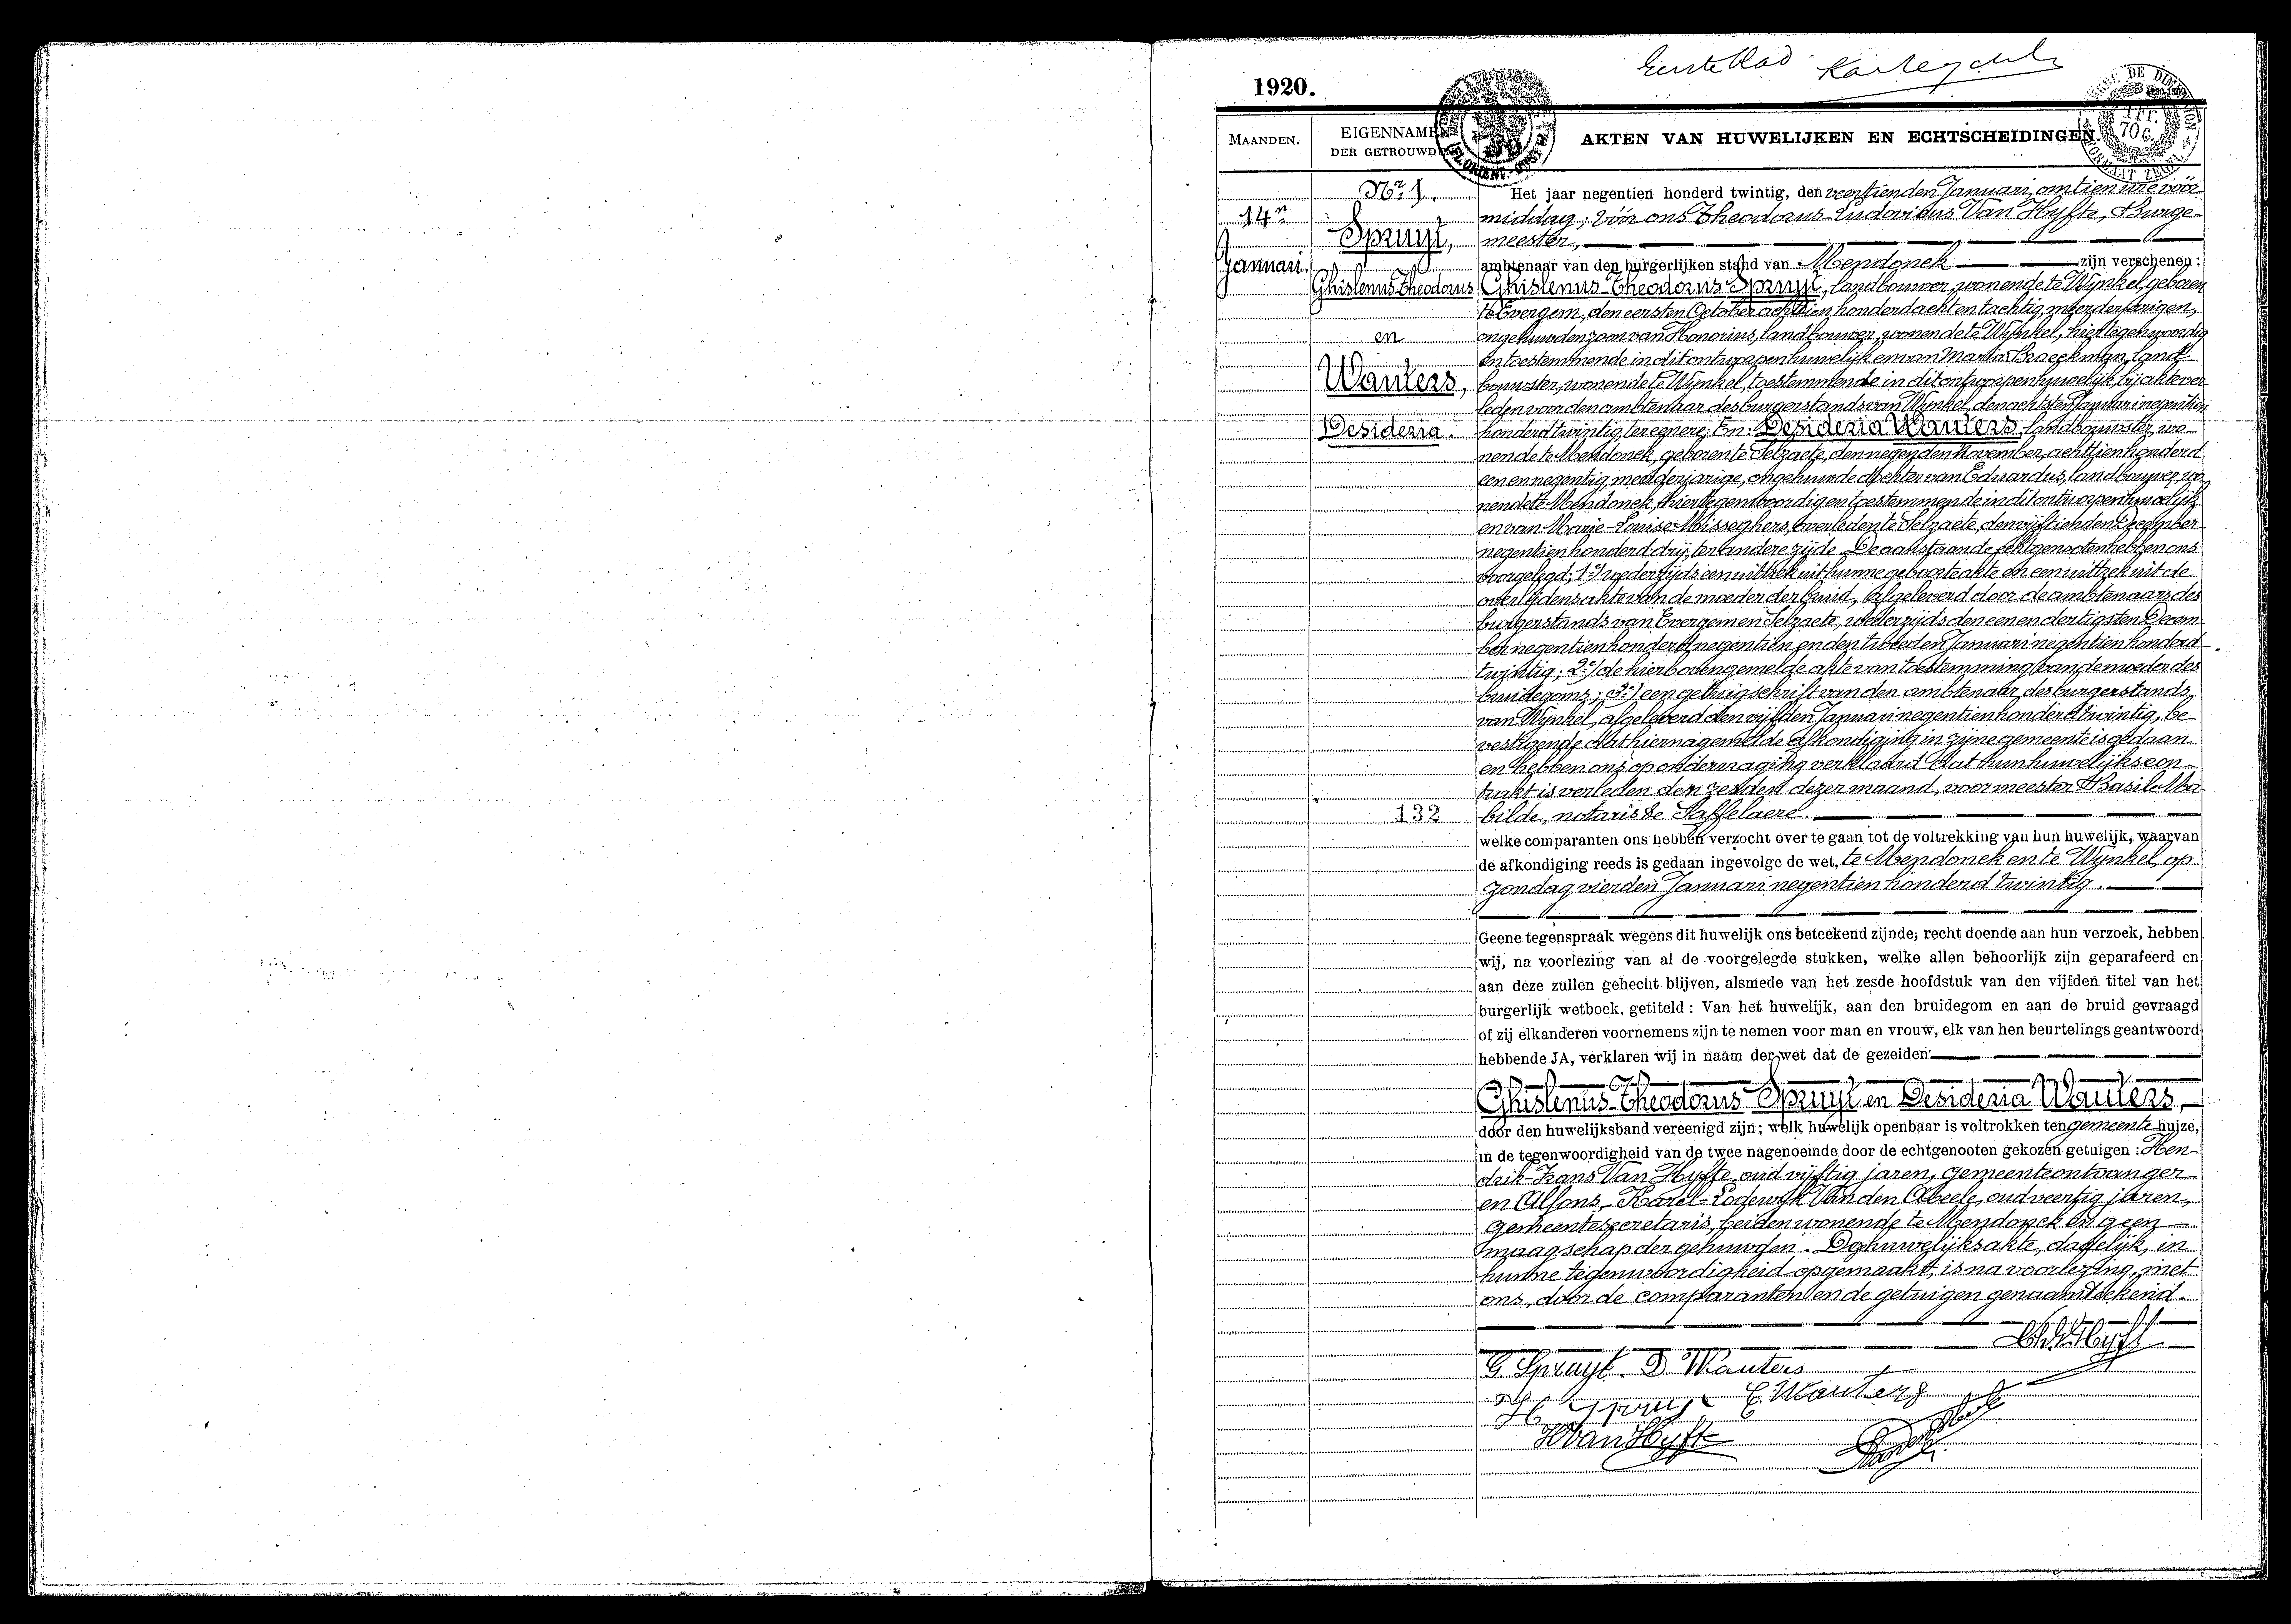 Eerste blad
1920.
MAANDEN.
EIGENNAMEN
DER GETROUWDEN
AKTEN VAN HUWELIJKEN EN ECHTSCHEIDINGEN.
1 FR.
70 C.
Nr 1.
14n
Januari.
Spruyt,
Ghislenus-Theodorus
en
Wauters,
Desideria.
132
Het jaar negentien honderd twintig, den veertienden Januari, om tien ure vóór
middag; vóór ons Theodorus-Ludovicus Van Hyfte, Burge-
meester,
ambtenaar van den burgerlijken stand van Mendonck zijn verschenen:
Ghislenus-Theodorus Spruyt, landbouwer, wonende te Wynkel, geboren
te Evergem, den eersten October achttien honderd acht en tachtig, meerderjarigen,
ongehuwden zoon van Honorius, landbouwer, wonende te Wynkel, hier tegenwoordig
en toestemmende in dit ontworpen huwelijk en van Maria Braeckman, land-
bouwster, wonende te Wynkel, toestemmende in dit ontworpen huwelijk, bij akte ver-
leden voor den ambtenaar des burgerstands van Wynkel, den achtsten Januari negentien
honderd twintig, ter eenere; En: Desideria Wauters, landbouwster, wo-
nende te Mendonck, geboren te Selzaete, den negenden November, achttien honderd
een en negentig, meerderjarige, ongehuwde dochter van Eduardus, landbouwer, wo-
nende te Mendonck, hier tegenwoordig en toestemmende in dit ontworpen huwelijk
en van Marie-Louise Misseghers, overleden te Selzaete, den vijftienden December
negentien honderd drij, ter andere zijde. De aanstaande echtgenooten hebben ons
voorgelegd; 1e) wederzijds een uittrek uit hunne geboorteakte en een uittrek uit de
overlijdensakte van de moeder der bruid, afgeleverd door de ambtenaars des
burgerstands van Evergem en Selzaete, wederzijds den een en dertigsten Decem-
ber negentien honderd negentien en den tweeden Januari negentien honderd
twintig; 2e) de hierboven gemelde akte van toestemming van de moeder des
bruidegoms; 3e) een getuigschrift van den ambtenaar des burgerstands
van Wynkel, afgeleverd den vijfden Januari negentien honderd twintig, be-
vestigende dat hiernagemelde afkondiging in zijne gemeente is gedaan
en hebben ons op ondervraging verklaard dat hun huwelijkscon-
trakt is verleden den zesden dezer maand, voor meester Basile Ma-
bilde, notaris te Saffelaere.
welke comparanten ons hebben verzocht over te gaan tot de voltrekking van hun huwelijk, waarvan
de afkondiging reeds is gedaan ingevolge de wet, te Mendonck en te Wynkel, op
zondag vierden Januari negentien honderd twintig.
Geene tegenspraak wegens dit huwelijk ons beteekend zijnde; recht doende aan hun verzoek, hebben
wij, na voorlezing van al de voorgelegde stukken, welke allen behoorlijk zijn geparafeerd en
aan deze zullen gehecht blijven, alsmede van het zesde hoofdstuk van den vijfden titel van het
burgerlijk wetboek, getiteld : Van het huwelijk, aan den bruidegom en aan de bruid gevraagd
of zij elkanderen voornemens zijn te nemen voor man en vrouw, elk van hen beurtelings geantwoord
hebbende JA, verklaren wij in naam der wet dat de gezeiden
Ghislenus-Theodorus Spruyt en Desideria Wauters,
door den huwelijksband vereenigd zijn; welk huwelijk openbaar is voltrokken ten gemeente huize,
in de tegenwoordigheid van de twee nagenoemde door de echtgenooten gekozen getuigen : Hen-
drik-Frans Van Hyfte, oud vijftig jaren, gemeenteontvanger
en Alfons-Karel-Lodewijk Van den Abeele, oud veertig jaren,
gemeentesecretaris, beiden wonende te Mendonck en geen
maagschap der gehuwden. Deze huwelijksakte, dadelijk, in
hunne tegenwoordigheid opgemaakt, is na voorlezing, met
ons, door de comparanten en de getuigen genaamteekend.
G Spruyt D Wauters
H Spruyt E Wauters
H Van Hyfte